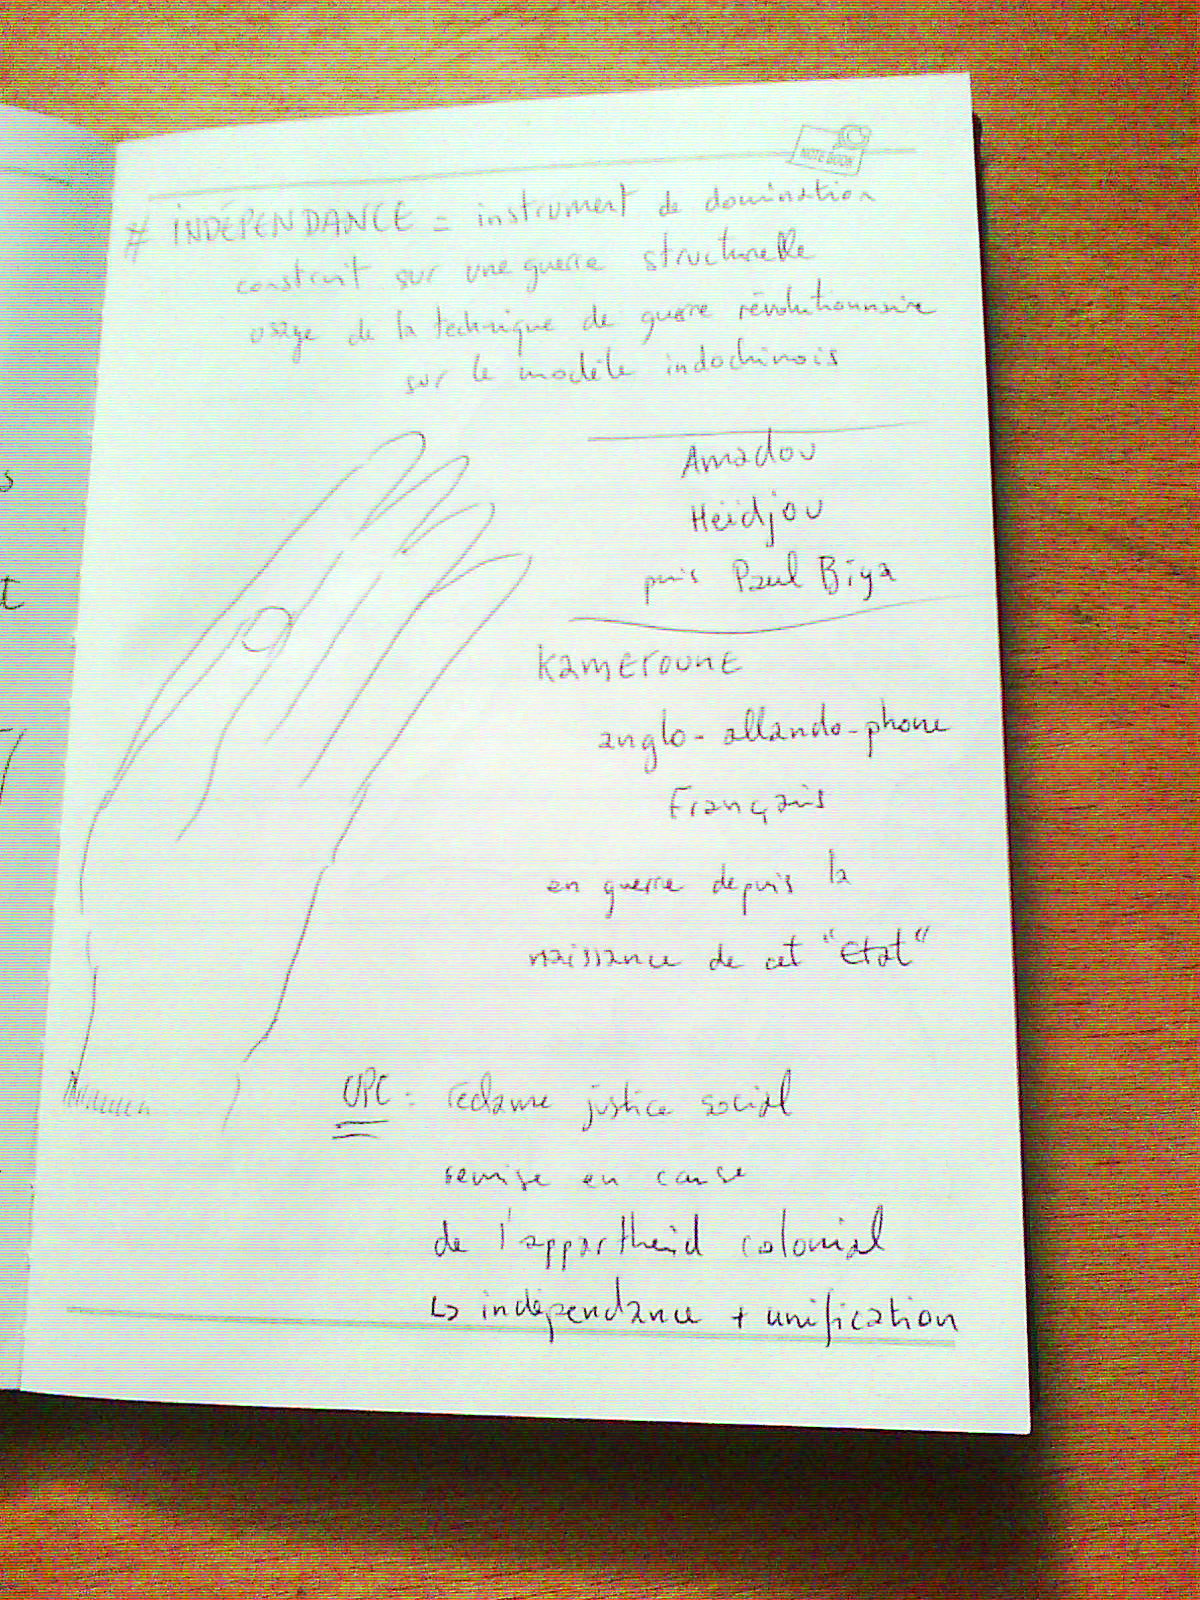 NOTE BOOK
# INDÉPENDANCE = instrument de domination
construit sur une guerre structurelle
usage de la technique de guerre révolutionnaire
sur le modèle indochinois
Amadou
Heidjou
puis Paul Biya
KAMEROUNE
anglo-allando-phone
Français
en guerre depuis la
naissance de cet "Etat"
UPC : réclame justice social
remise en cause
de l'appartheid colonial
↳ indépendance + unification